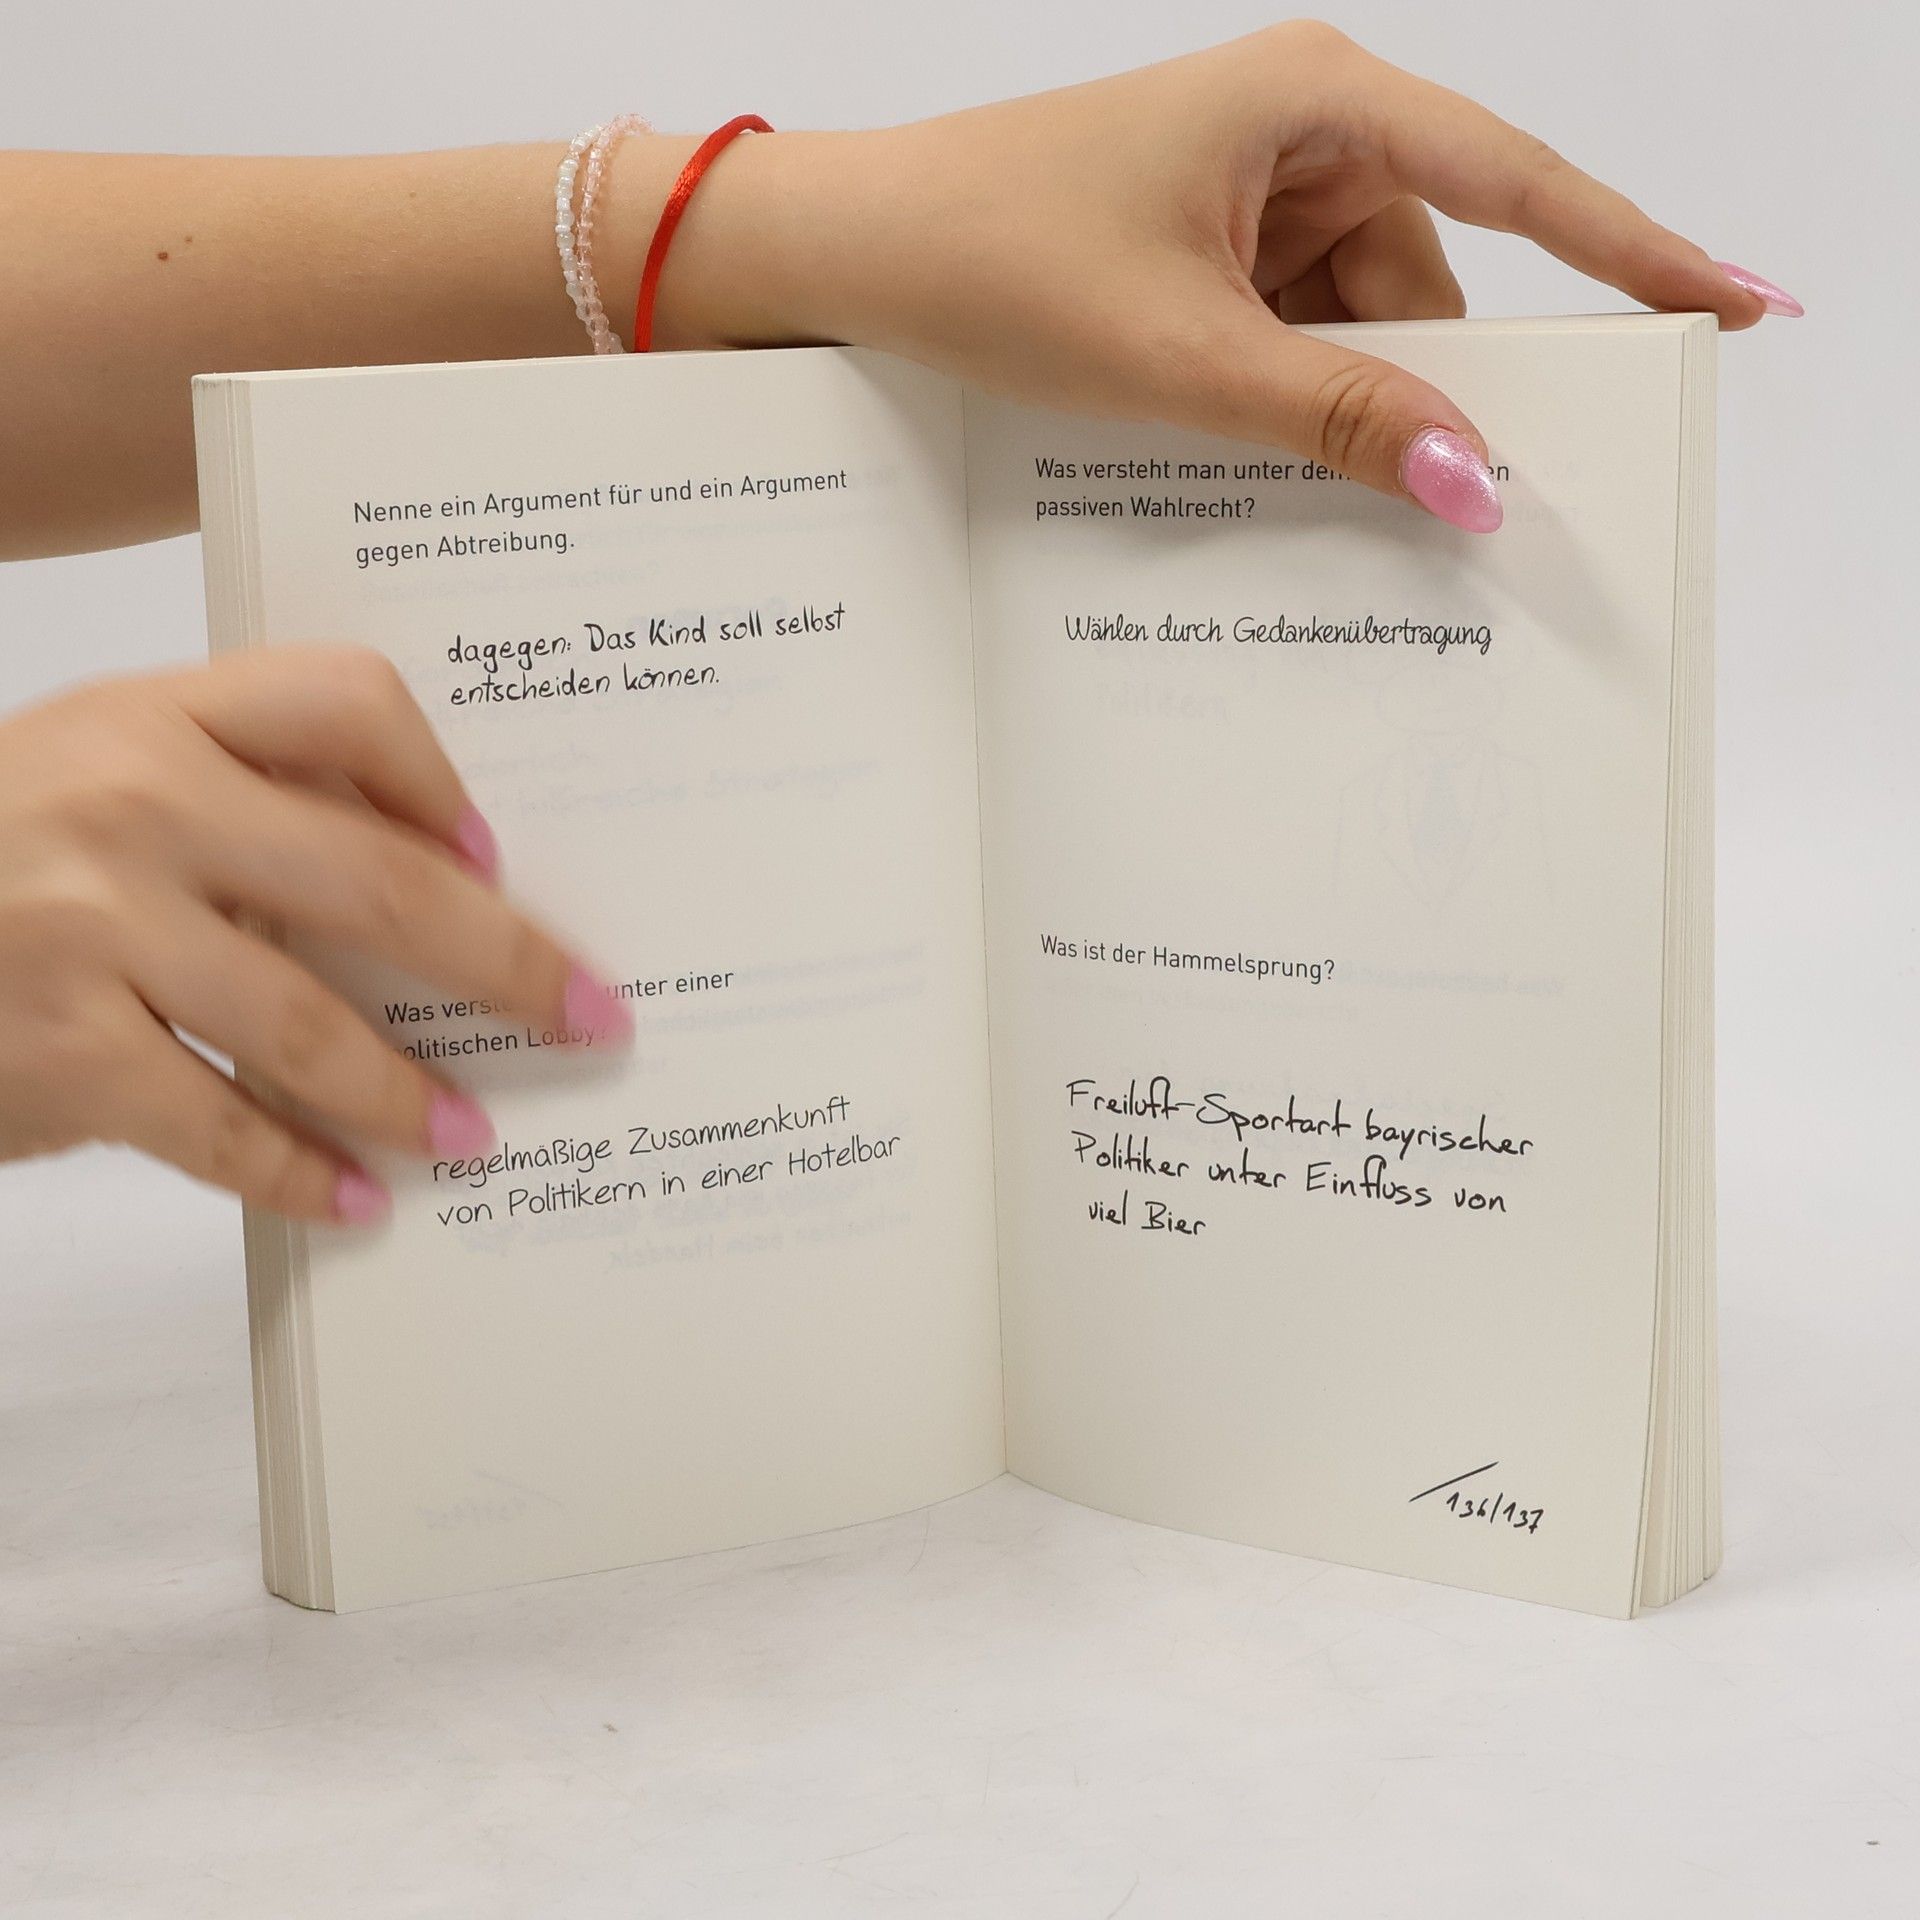 Nenne ein Argument für und ein Argument
gegen Abtreibung.
dagegen: Das Kind soll selbst
entscheiden können.
Was unter einer
politischen Lobby?
regelmäßige Zusammenkunft
von Politikern in einer Hotelbar
Was versteht man unter
passiven Wahlrecht?
Wählen durch Gedankenübertragung
Was ist der Hammelsprung?
Freiluft-Sportart bayrischer
Politiker unter Einfluss von
viel Bier
136/137